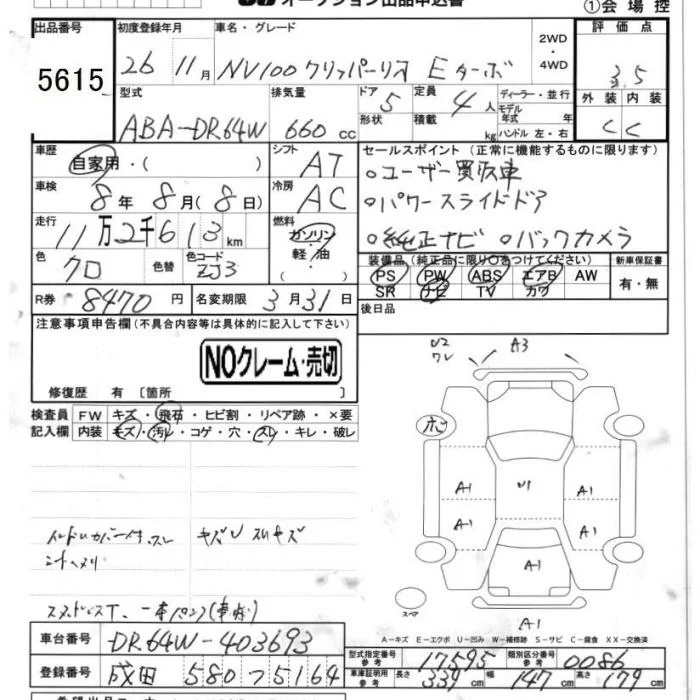 オークション出品申込書
①会場控
出品番号 初度登録年月 車名・グレード 2WD・4WD 評価点
5615 26 11月 NV100クリッパーリオ Eターボ 3.5
型式 排気量 ドア 5 定員 4人 ディーラー・並行 外装 内装
ABA-DR64W 660cc 形状 積載 kg モデル年式 年 ハンドル 左・右 C C
車歴 シフト セールスポイント(正常に機能するものに限ります)
自家用・( ) AT ○ユーザー買取車
車検 冷房 ○パワースライドドア
8年8月(8日) AC
走行 燃料 ○純正ナビ ○バックカメラ
11万2千613km ガソリン・軽・油・( )
色 色替 色コード 装備品(純正品に限り○をつけてください) 新車保証書
クロ ZJ3 PS PW ABS エアB AW 有・無
SR ナビ TV カワ
R券 8470円 名変期限 3月31日 後日品
注意事項申告欄(不具合内容等は具体的に記入して下さい)
NOクレーム・売切
修復歴 有〔箇所 〕
検査員 FW キズ・飛石・ヒビ割・リペア跡・×要
記入欄 内装 キズ・汚レ・コゲ・穴・スレ・キレ・破レ
U2 ワレ A3
ホコ
A1 U1 A1
A1 A1
A1
キズ
スペア
A1
A-キズ E-エクボ U-凹み W-補修跡 S-サビ C-腐食 XX-交換済
車台番号 DR64W-403693
型式指定番号 参考 17595 類別区分番号 参考 0086
登録番号 成田 580 つ 5164
車庫証明用 参考 長さ 339cm 幅 147cm 高さ 179cm